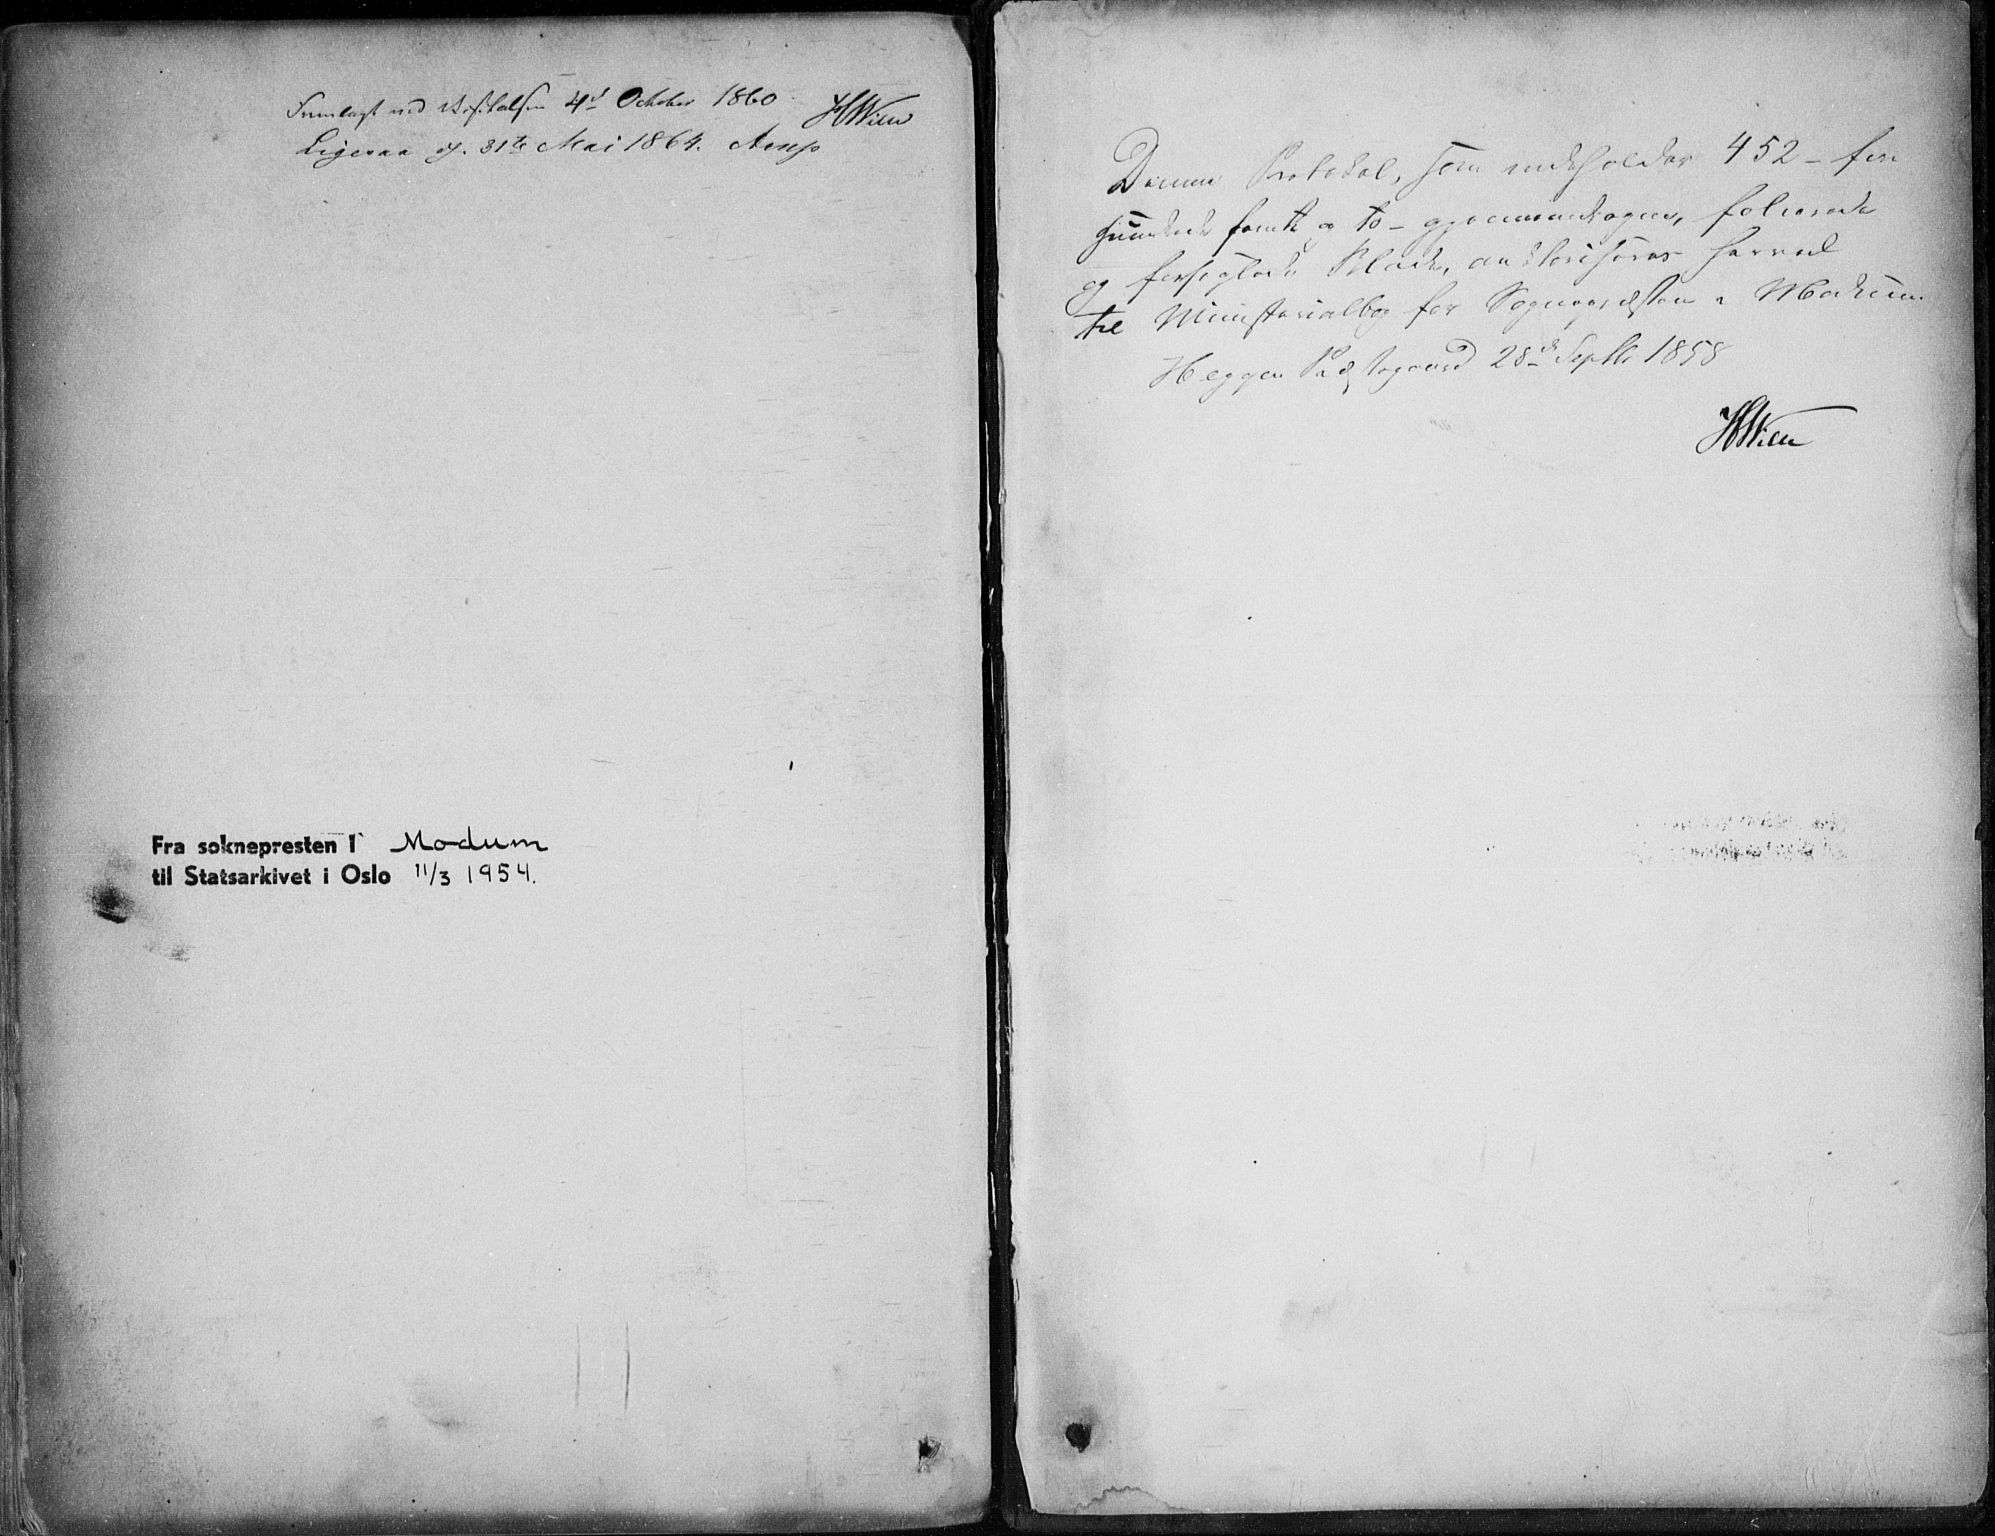 Fremlagt ved Visitatsen 4d October 1860 HWille
Ligesaa d. 31te Mai 1864. Arup
Fra soknepresten i Modum
til Statsarkivet i Oslo 11/3 1954.
Denne Protokol, som indeholder 452 – fire
hundrede femti og to – gjennemdragne, folierede
og forseglede Blade, authoriseres herved
til Ministerialbog for Sognepræsten i Modum.
Heggen Præstegaard 28d Septbr 1858
HWille